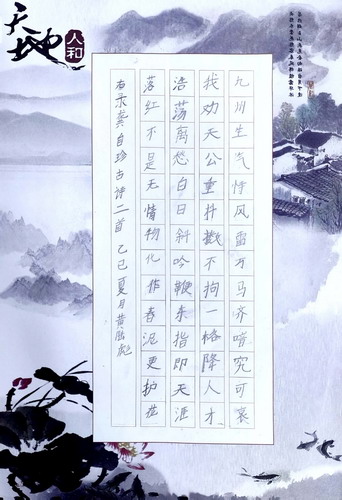 天地
人和
九州生气恃风雷万马齐喑究可哀
我劝天公重抖擞不拘一格降人才
浩荡离愁白日斜吟鞭东指即天涯
落红不是无情物化作春泥更护花
右录龚自珍古诗二首乙巳夏月黄